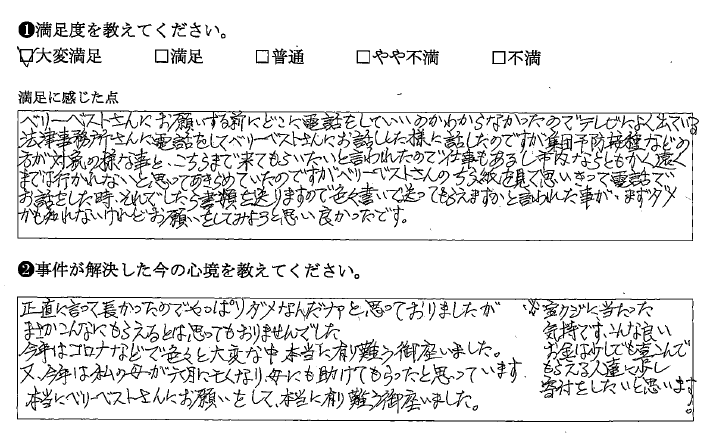 ❶満足度を教えてください。
☑大変満足 □満足 □普通 □やや不満 □不満
満足に感じた点
ベリーベストさんにお願いする前にどこに電話をしていいのかわからなかったのでテレビによく出ている
法律事務所さんに電話をしてベリーベストさんにお話しした様に話したのですが集団予防接種などの
方が対象の様な事と、こちらまで来てもらいたいと言われたので仕事もあるし市内ならともかく遠く
までは行かれないと思ってあきらめていたのですがベリーベストさんのちらし紙を見て思いきって電話で
お話をした時、それでしたら書類を送りますので色々書いて送ってもらえますかと言われた事が、まずダメ
かも知れないけれどお願いをしてみようと思い良かったです。
❷事件が解決した今の心境を教えてください。
正直に言って長かったのでやっぱりダメなんだナァと思っておりましたが
まさかこんなにもらえるとは思ってもおりませんでした
今年はコロナなどで色々と大変な中本当に有り難う御座いました。
又、今年は私の母が六月に亡くなり、母にも助けてもらったと思っています
本当にベリーベストさんにお願いをして、本当に有り難う御座いました。
※宝クジに当たった
気持です、こんな良い
お金は少しでも喜こんで
もらえる人達に少し
寄付をしたいと思います。